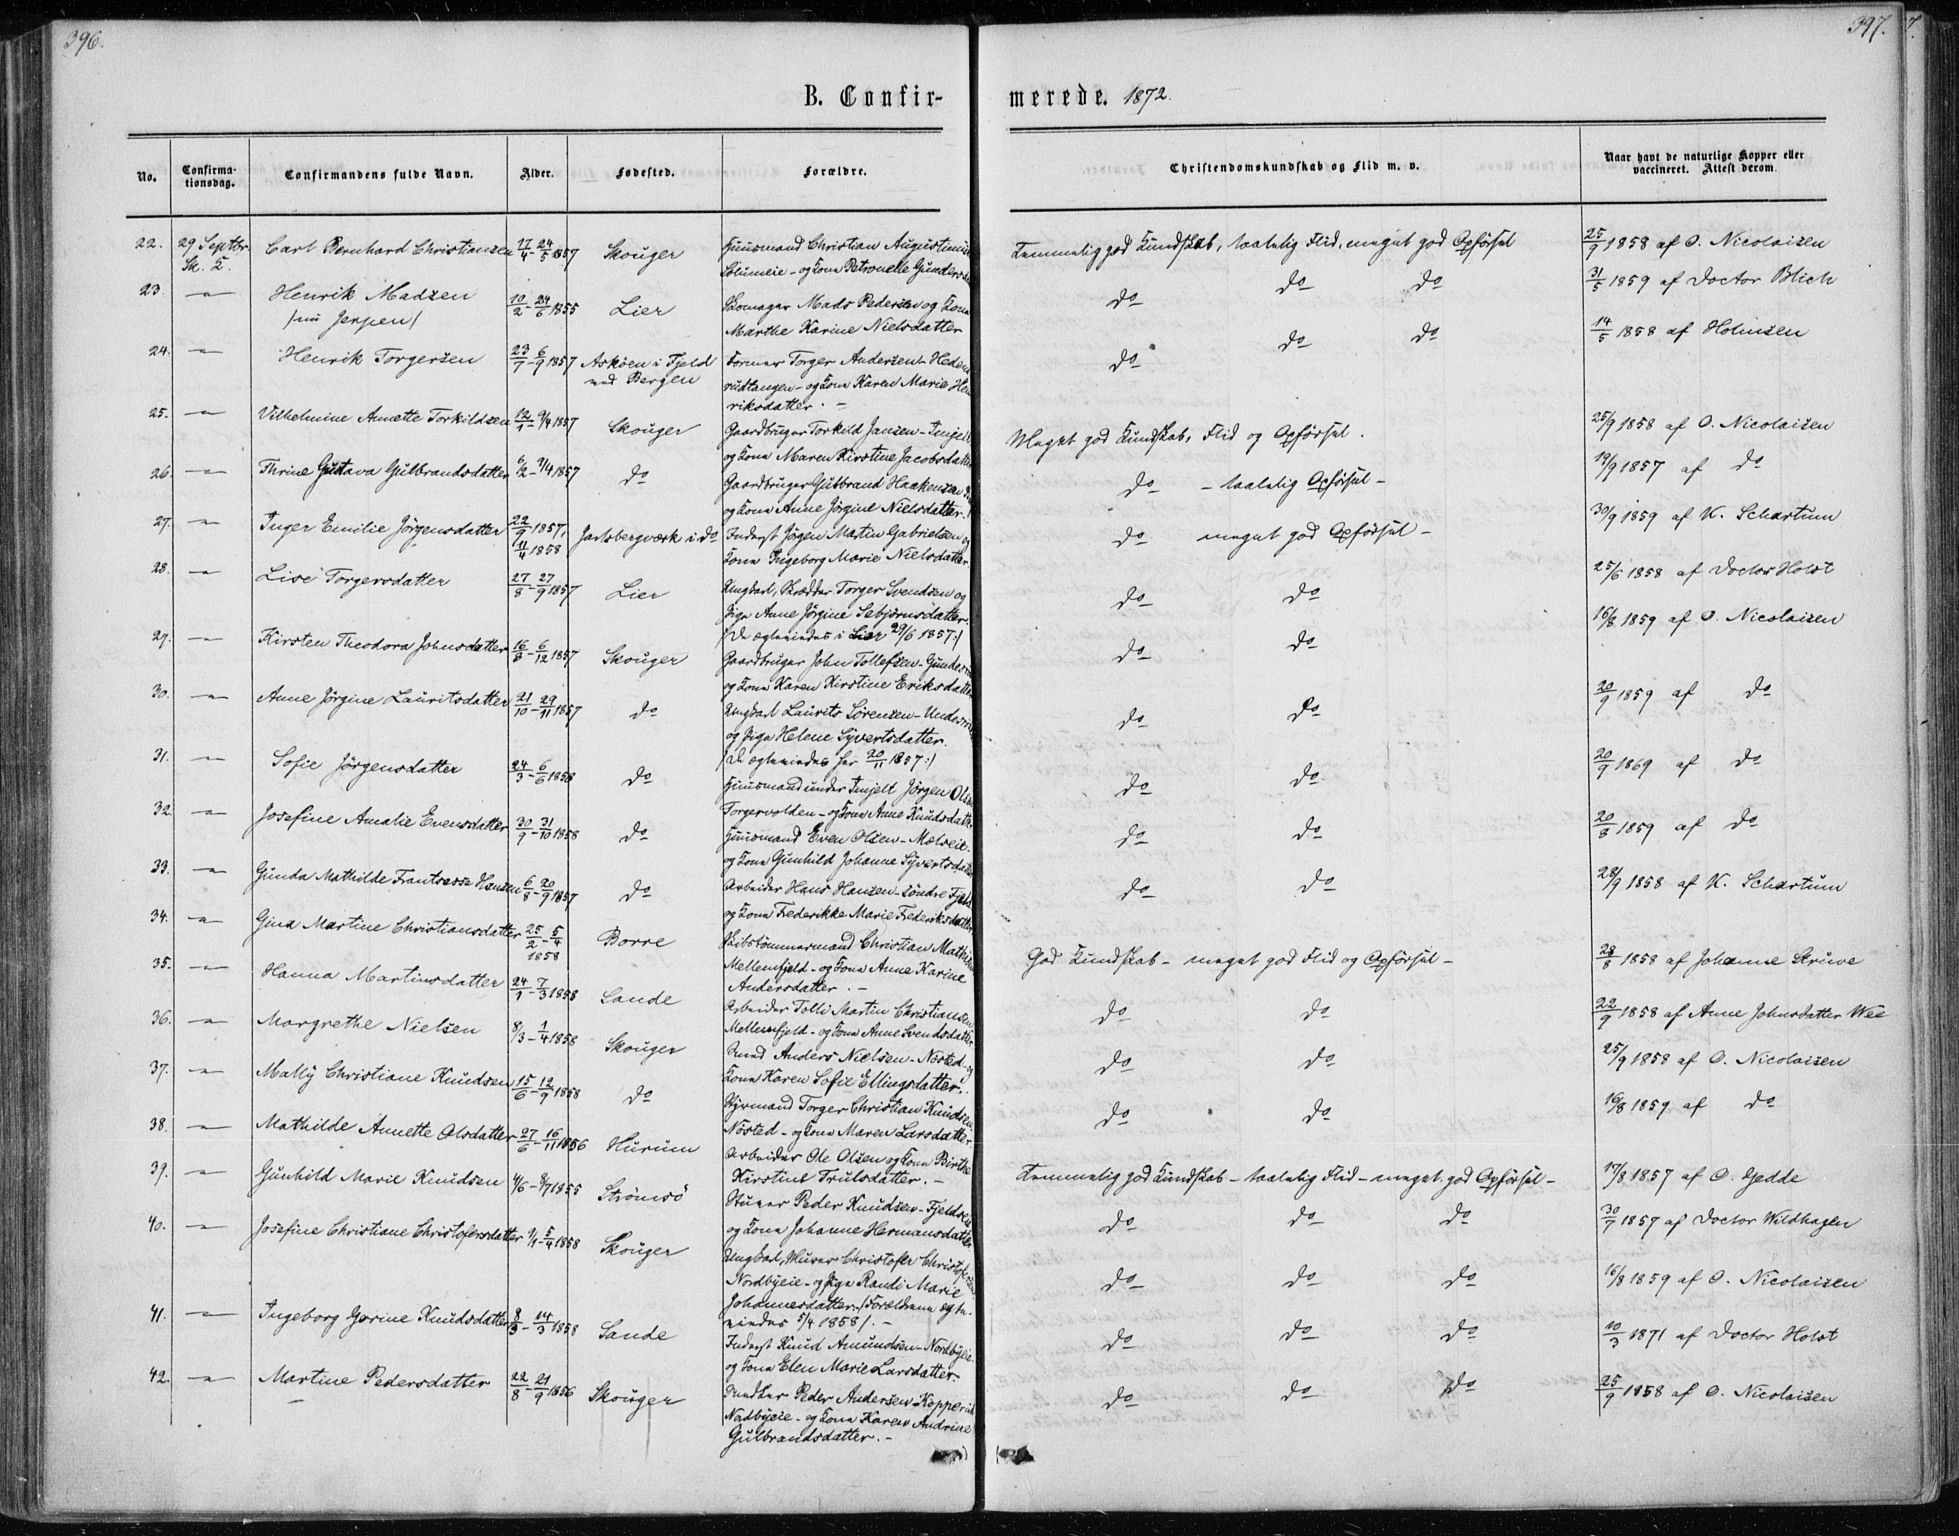 396.
397.
7.
B. Confir-
merede. 1872.
No.
Confirma-
tionsdag.
Confirmandens fulde Navn.
Alder.
Fødested.
Forældre.
Christendomskundskab og Flid m. v.
Naar havt de naturlige Kopper eller
vaccineret. Attest derom.
22. 29 Septbr. Carl Bernhard Christiansen 17/4 - 24/5 1857 Skouger Huusmand Christian Augustinus
Sk. K. Solumeie - og Kone Petronelle Gunders
Temmelig god Kundskab, taalelig Flid, meget god Opførsel 25/9 1858 af O. Nicolaisen
23. — Henrik Madsen 10/2 - 24/6 1855 Lier Skomager Mads Pedersen og Kone
/nu Jerpen/ Marthe Karine Nielsdatter
do do do 31/5 1859 af Doctor Blich
24. — Henrik Torgersen 23/7 - 6/9 1857 Askøen i Fjeld Former Torger Andersen - Hedens
ved Bergen rudtangen - og Kone Karen Marie Hen
riksdatter. —
do do do 14/5 1858 af Holmsen
25. — Vilhelmine Annette Torkildsen 12/1 - 9/4 1857 Skouger Gaardbruger Torkild Jansen - Imjelt
og Kone Maren Kirstine Jacobsdatter
Meget god Kundskab, Flid og Opførsel. 25/9 1858 af O. Nicolaisen
26. — Thrine Gustava Gulbrandsdatter 6/2 - 9/4 1857 do Gaardbruger Gulbrand Haakensen
og Kone Anne Jørgine Nielsdatter.
do - taalelig Opførsel - 19/9 1857 af do
27. — Inger Emilie Jørgensdatter 22/9 1857, Jarlsbergværk i do Inderst Jørgen Martin Gabrielsen og
11/4 1858 Kone Ingeborg Marie Nielsdatter
do meget god Opførsel - 30/9 1859 af K. Schartum
28. — Lise Torgersdatter 27/8 - 27/9 1857 Lier Ungkarl, Skrædder Torger Svendsen og
Pige Anne Jørgine Sebjørnsdatter.
/De ægteviedes i Lier 29/6 1857:/
do do 25/6 1858 af Doctor Holst
29. — Kirsten Theodora Johnsdatter 16/8 - 6/12 1857 Skouger Gaardbruger John Tollefsen - Gundes
og Kone Karen Kirstine Eriksdatter
do do 16/8 1859 af O. Nicolaisen
30. — Anne Jørgine Lauritsdatter 21/10 - 29/11 1857 do Ungkarl Laurits Sørensen - Undes
og Pige Helene Syvertsdatter.
/De ægteviedes her 20/11 1857:/
do do 20/9 1859 af do
31. — Sofie Jørgensdatter 24/3 - 6/6 1858 do Huusmand under Imjelt Jørgen Olsen
Torgersvolden - og Kone Anne Knudsdatter
do do 20/9 1869 af do
32. — Josefine Amalie Evensdatter 30/9 - 31/10 1858 do Huusmand Even Olsen - Mølseie.
og Kone Gunhild Johanne Syvertsdatter
do do 20/8 1859 af do
33. — Gunda Mathilde Frantsesse Hansen 6/8 - 20/9 1857 do Arbeider Hans Hansen - søndre Fjeld
og Kone Frederikke Marie Frederiksdatter
do do 28/9 1858 af K. Schartum
34. — Gina Martine Christiansdatter 25/2 - 5/4 1858 Borre Skibstømmermand Christian Mathi
Mellemfjeld - og Kone Anne Karine
Andersdatter. —
God Kundskab - meget god Flid og Opførsel - 28/8 1858 af Johanne Struve
35. — Hanna Martinsdatter 24/1 - 7/3 1858 Sande Arbeider Tolli Martin Christiansen
Mellemfjeld - og Kone Anne Svendsdatter
do do 22/9 1858 af Anne Johnsdatter Wee
36. — Margrethe Nielsen 8/3 - 1/4 1858 Skouger Anders Nielsen - Nøsted - og
Kone Karen Sofie Ellingsdatter.
do do 25/9 1858 af O. Nicolaisen
37. — Mally Christiane Knudsen 15/6 - 12/9 1858 do Styrmand Torger Christian Knudsen
Nøsted - og Kone Maren Larsdatter
do do 16/8 1859 af do
38. — Mathilde Annette Olsdatter 27/6 - 16/11 1856 Hurum Arbeider Ole Olsen og Kone Birthe
Kirstine Trulsdatter. —
Temmelig god Kundskab - taalelig Flid - meget god Opførsel - 17/8 1857 af O. Gedde
39. — Gunhild Marie Knudsen 4/6 - 8/7 1855 Strømsø Murer Peder Knudsen - Fjeldseie
og Kone Johanne Hermansdatter
do do do 30/7 1857 af Doctor Wildhagen
40. — Josefine Christiane Christofersdatter 9/1 - 5/4 1858 Skouger Ungkarl, Murer Christofer Christofersen
Nordbyeie - og Pige Randi Marie
Johannesdatter. /Forældrene ægte-
viedes 5/4 1858/. —
do do do 16/8 1859 af O. Nicolaisen
41. — Ingeborg Gorine Knudsdatter 8/3 - 14/3 1858 Sande Inderst Knud Amundsen - Nordbyeie
og Kone Elen Marie Larsdatter.
do do do 10/3 1871 af Doctor Holst
42. — Martine Pedersdatter 22/8 - 21/9 1856 Skouger Peder Andersen Kopperud
Nordbyeie - og Kone Karen Andrine
Gulbrandsdatter. —
do do do 25/9 1858 af O. Nicolaisen